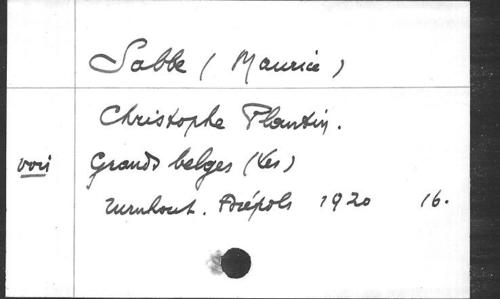 Sabbe (Maurice)
Christophe Plantin.
voir Grands belges (Les)
Turnhout. Brépols 1920 16.